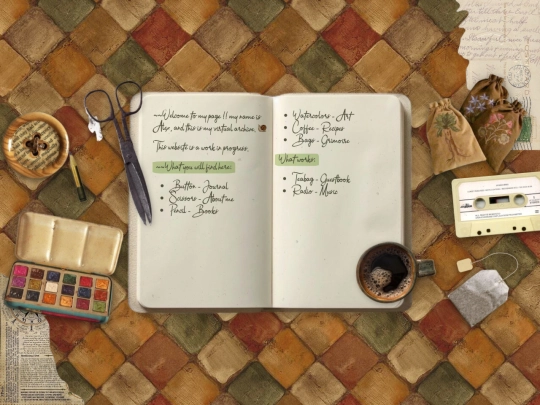 ~~Welcome to my page !! my name is
Alex, and this is my virtual archive.
This website is a work in progress.
~~What you will find here:
• Button - Journal
• Scissors - About me
• Pencil - Books
• Watercolors - Art
• Coffee - Recipes
• Bags - Grimoire
What works:
• Teabag - Guestbook
• Radio - Music